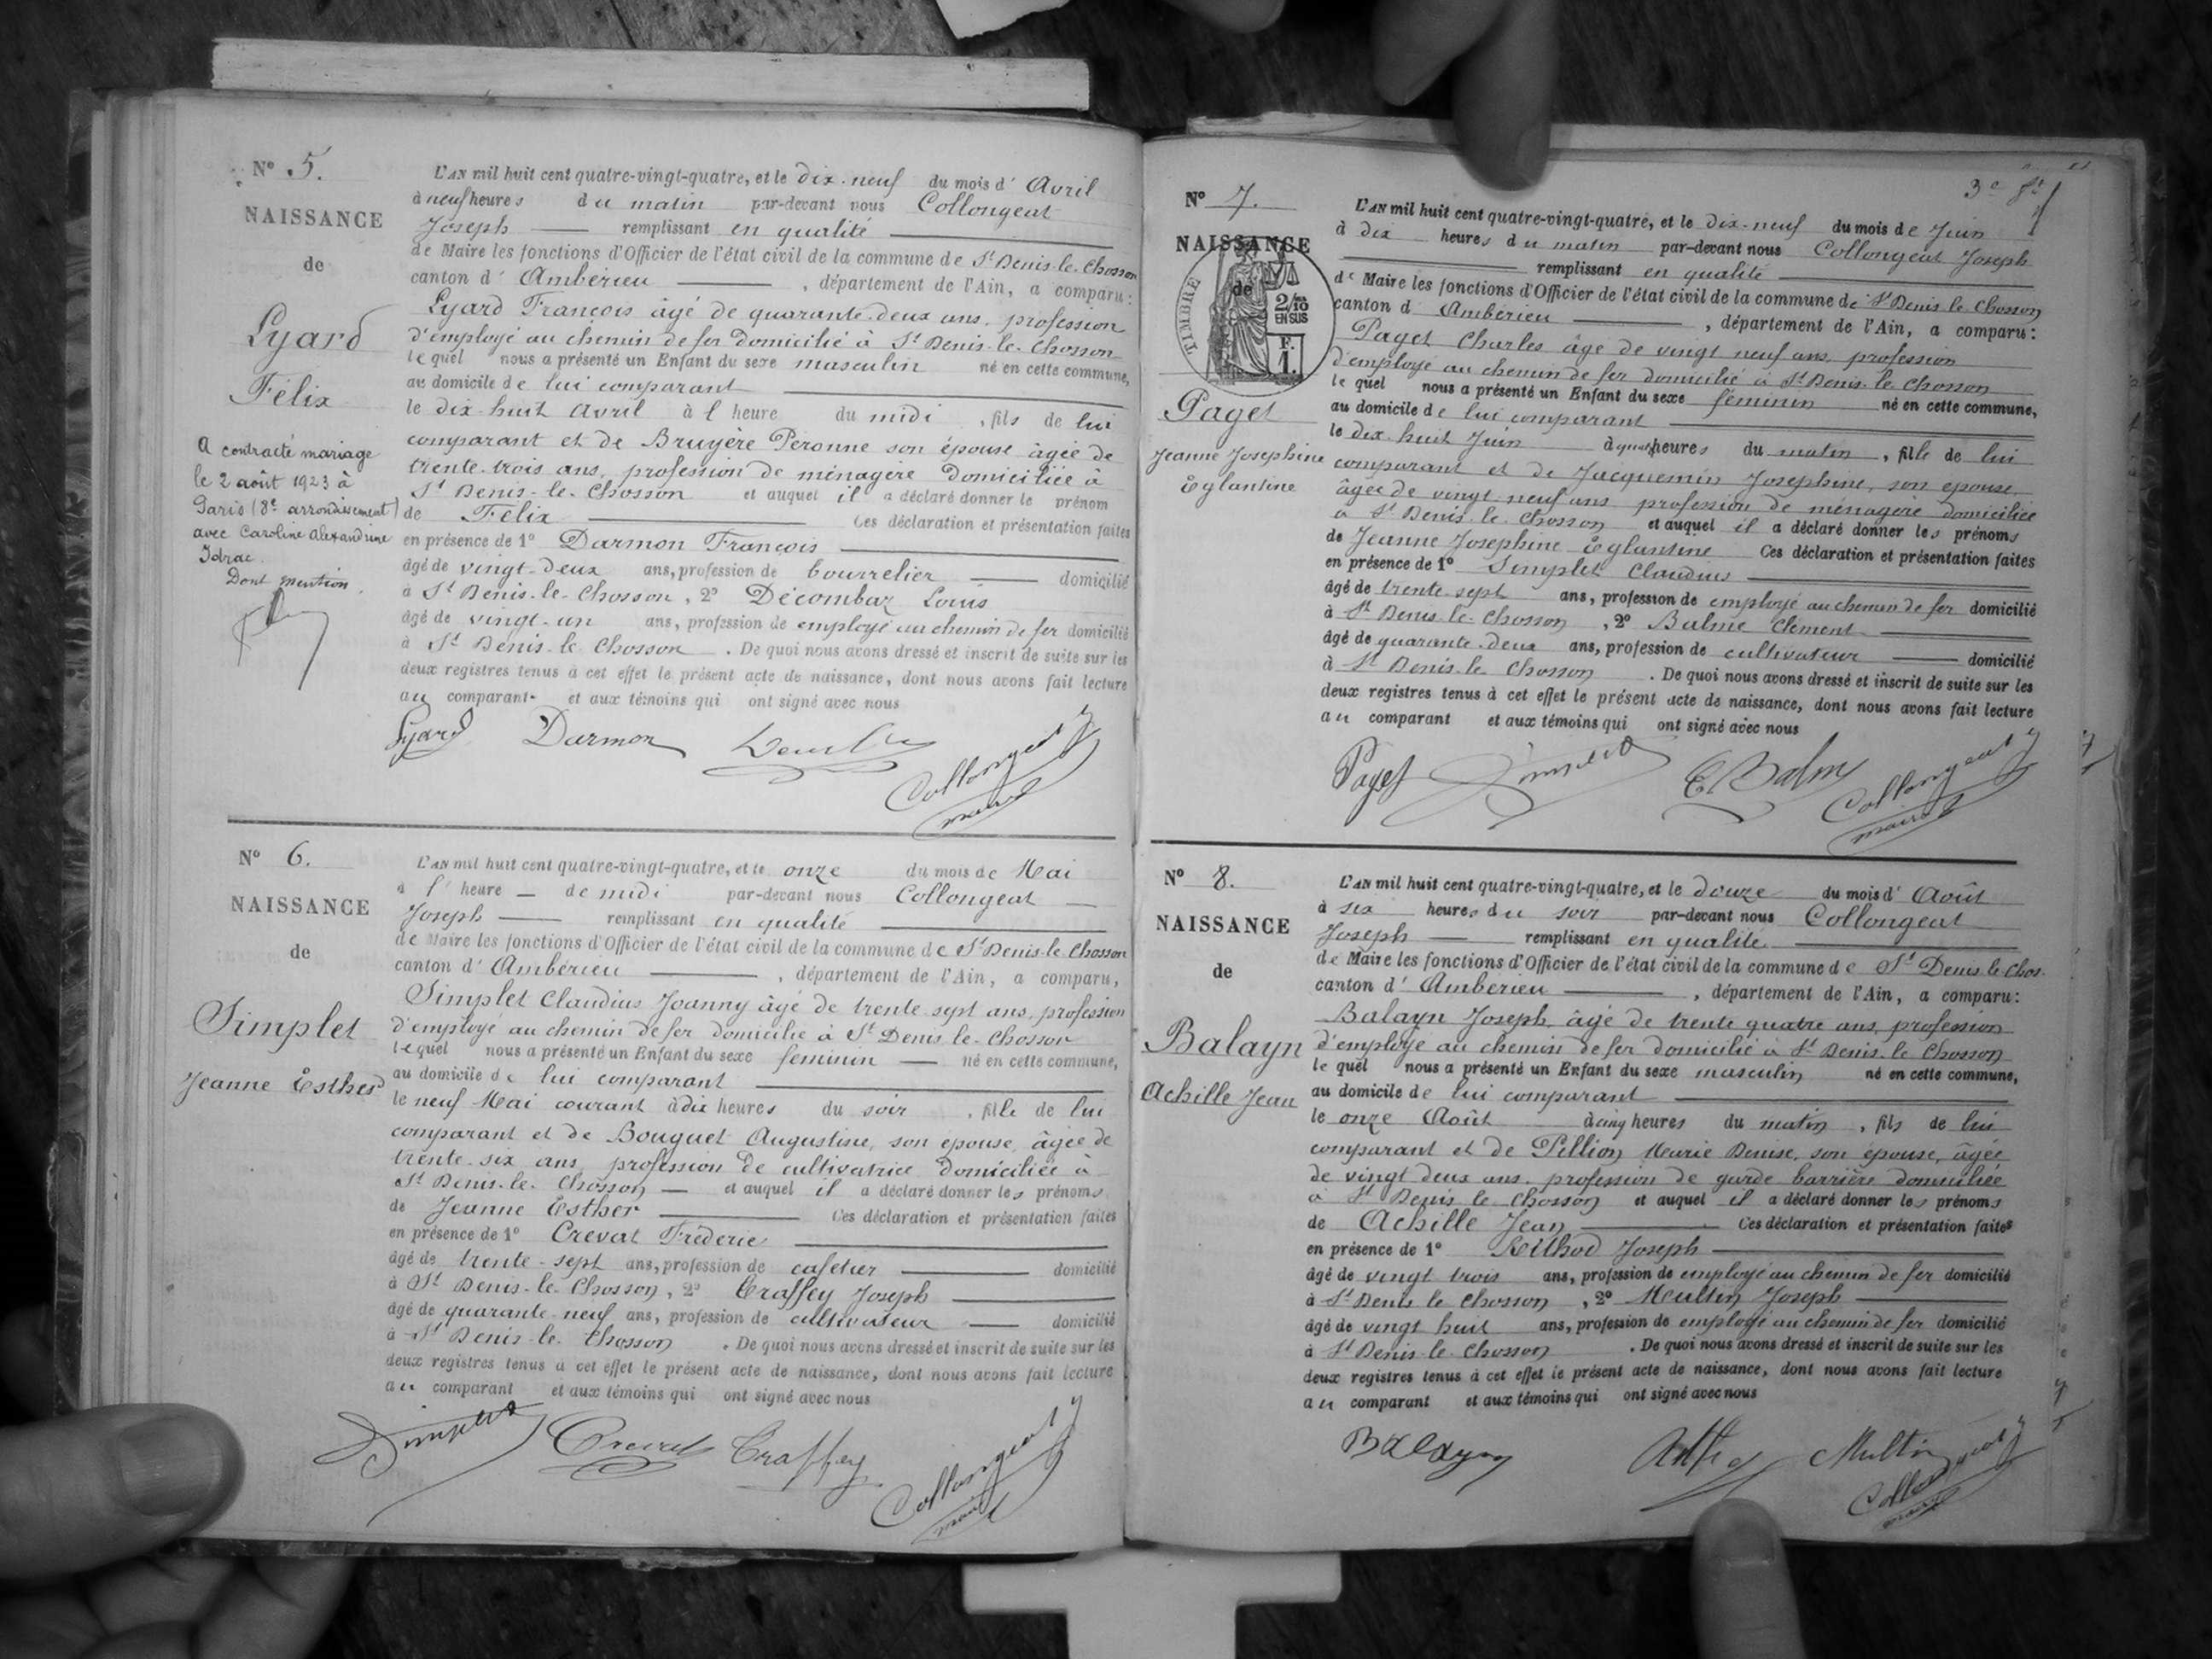 N° 5.
NAISSANCE
de
Lyard
Félix
A contracté mariage
le 2 août 1923 à
Paris (8e arrondissement)
avec Caroline Alexandrine
Idrac.
Dont mention.
L'AN mil huit cent quatre-vingt-quatre, et le dix-neuf du mois d' Avril
à neuf heures du matin par-devant nous Collongeat
Joseph remplissant en qualité
de Maire les fonctions d'Officier de l'état civil de la commune de St Denis-le-Chosson
canton d' Ambérieu, département de l'Ain, a comparu:
Lyard François âgé de quarante-deux ans, profession
d'employé au chemin de fer domicilié à St Denis-le-Chosson
lequel nous a présenté un Enfant du sexe masculin né en cette commune,
au domicile de lui comparant
le dix-huit Avril à l heure du midi, fils de lui
comparant et de Bruyère Péronne son épouse âgée de
trente-trois ans, profession de ménagère domiciliée à
St Denis-le-Chosson et auquel il a déclaré donner le prénom
de Félix Ces déclaration et présentation faites
en présence de 1° Darmon François
âgé de vingt-deux ans, profession de bourrelier domicilié
à St Denis-le-Chosson, 2° Décombaz Louis
âgé de vingt-un ans, profession de employé au chemin de fer domicilié
à St Denis-le-Chosson. De quoi nous avons dressé et inscrit de suite sur les
deux registres tenus à cet effet le présent acte de naissance, dont nous avons fait lecture
au comparant et aux témoins qui ont signé avec nous
Lyard Darmon Collongeat
maire
N° 6.
NAISSANCE
de
Simplet
Jeanne Esther
L'AN mil huit cent quatre-vingt-quatre, et le onze du mois de Mai
à l' heure de midi par-devant nous Collongeat
Joseph remplissant en qualité
de Maire les fonctions d'Officier de l'état civil de la commune de St Denis-le-Chosson
canton d' Ambérieu, département de l'Ain, a comparu,
Simplet Claudius Joanny âgé de trente-sept ans, profession
d'employé au chemin de fer domicilié à St Denis-le-Chosson
lequel nous a présenté un Enfant du sexe féminin né en cette commune,
au domicile de lui comparant
le neuf Mai courant à dix heures du soir, fille de lui
comparant et de Bouquet Augustine, son épouse, âgée de
trente-six ans, profession de cultivatrice domiciliée à
St Denis-le-Chosson et auquel il a déclaré donner les prénoms
de Jeanne Esther Ces déclaration et présentation faites
en présence de 1° Crevat Fréderic
âgé de trente-sept ans, profession de cafetier domicilié
à St Denis-le-Chosson, 2° Craffey Joseph
âgé de quarante-neuf ans, profession de cultivateur domicilié
à St Denis-le-Chosson. De quoi nous avons dressé et inscrit de suite sur les
deux registres tenus à cet effet le présent acte de naissance, dont nous avons fait lecture
au comparant et aux témoins qui ont signé avec nous
Simplet Crevat Craffey Collongeat
maire
3e ft
N° 7.
NAISSANCE
de
TIMBRE
2/10
EN SUS
F.
1.
Paget
Jeanne Josephine
Eglantine
L'AN mil huit cent quatre-vingt-quatre, et le dix-neuf du mois de Juin
à dix heures du matin par-devant nous Collongeat Joseph
remplissant en qualité
de Maire les fonctions d'Officier de l'état civil de la commune de St Denis-le-Chosson
canton d Ambérieu, département de l'Ain, a comparu:
Paget Charles âgé de vingt neuf ans, profession
d'employé au chemin de fer domicilié à St Denis-le-Chosson
lequel nous a présenté un Enfant du sexe féminin né en cette commune,
au domicile de lui comparant
le dix-huit Juin à quatre heures du matin, fille de lui
comparant et de Jacquemin Josephine, son épouse,
âgée de vingt neuf ans profession de ménagère domiciliée
à St Denis-le-Chosson et auquel il a déclaré donner les prénoms
de Jeanne Josephine Eglantine Ces déclaration et présentation faites
en présence de 1° Simplet Claudius
âgé de trente-sept ans, profession de employé au chemin de fer domicilié
à St Denis-le-Chosson, 2° Balme Clément
âgé de quarante-deux ans, profession de cultivateur domicilié
à St Denis-le-Chosson. De quoi nous avons dressé et inscrit de suite sur les
deux registres tenus à cet effet le présent acte de naissance, dont nous avons fait lecture
au comparant et aux témoins qui ont signé avec nous
Paget Simplet C Balme Collongeat
maire
N° 8.
NAISSANCE
de
Balayn
Achille Jean
L'AN mil huit cent quatre-vingt-quatre, et le douze du mois d' Août
à six heures du soir par-devant nous Collongeat
Joseph remplissant en qualité
de Maire les fonctions d'Officier de l'état civil de la commune de St Denis-le-Chos.
canton d' Ambérieu, département de l'Ain, a comparu:
Balayn Joseph, âgé de trente quatre ans, profession
d'employé au chemin de fer domicilié à St Denis-le-Chosson
lequel nous a présenté un Enfant du sexe masculin né en cette commune,
au domicile de lui comparant
le onze Août à cinq heures du matin, fils de lui
comparant et de Pellion Marie Denise, son épouse, âgée
de vingt deux ans, profession de garde barrière domiciliée
à St Denis-le-Chosson et auquel il a déclaré donner les prénoms
de Achille Jean Ces déclaration et présentation faites
en présence de 1° Joseph
âgé de vingt trois ans, profession de employé au chemin de fer domicilié
à St Denis le Chosson, 2° Multin Joseph
âgé de vingt huit ans, profession de employé au chemin de fer domicilié
à St Denis-le-Chosson. De quoi nous avons dressé et inscrit de suite sur les
deux registres tenus à cet effet le présent acte de naissance, dont nous avons fait lecture
au comparant et aux témoins qui ont signé avec nous
Balayn Multin Collongeat
maire